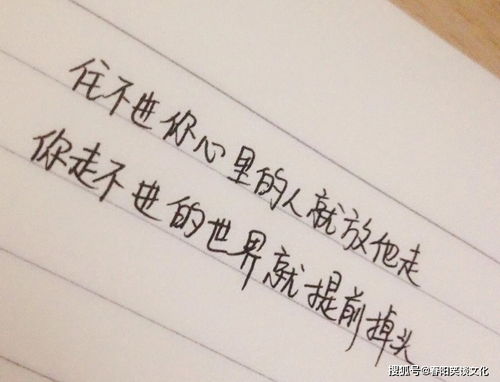 住不进你心里的人就放他走
你走不进的世界就提前掉头
搜狐号@春阳笑谈文化